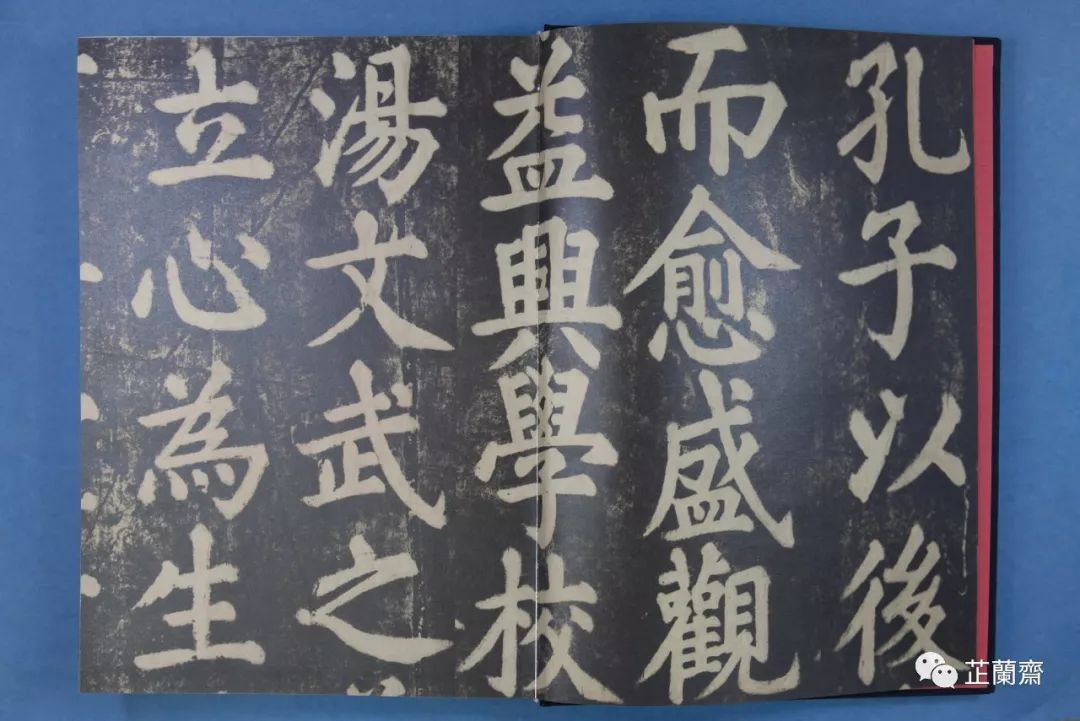 孔子以後
而愈盛觀
益興學校
湯文武之
立心為生
芷蘭齋